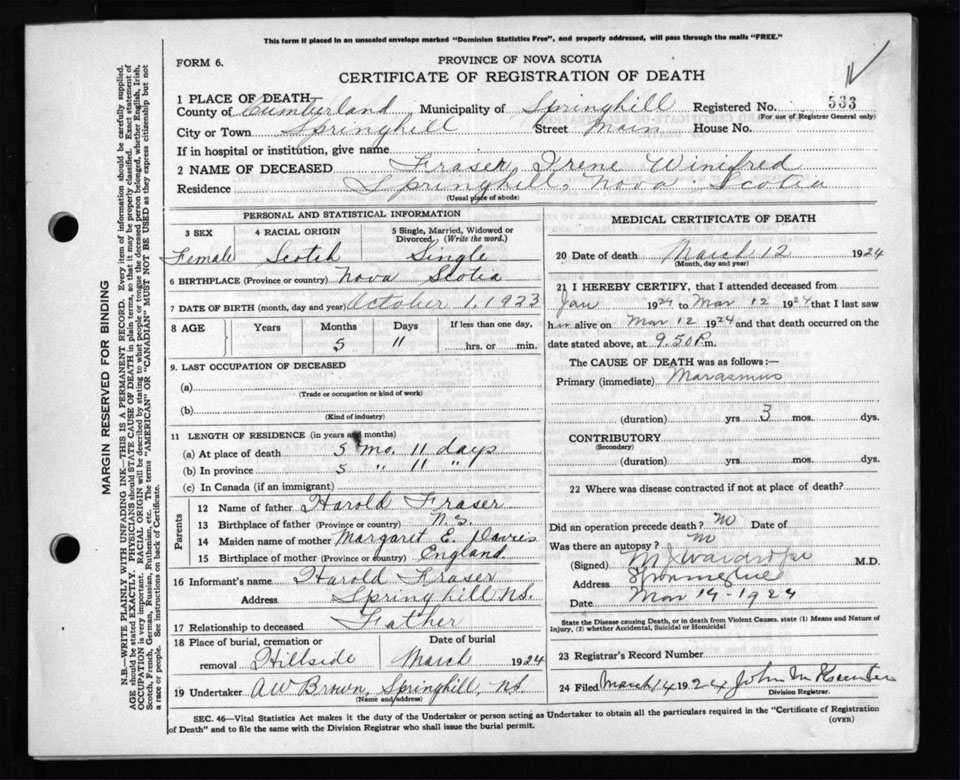 This form if placed in an unsealed envelope marked "Dominion Statistics Free", and properly addressed, will pass through the mails "FREE."
FORM 6.
PROVINCE OF NOVA SCOTIA
CERTIFICATE OF REGISTRATION OF DEATH
1 PLACE OF DEATH—
County of Cumberland Municipality of Springhill Registered No. 533
(For use of Registrar General only)
City or Town Springhill Street Main House No.
If in hospital or institution, give name
2 NAME OF DECEASED Fraser Irene Winifred
Residence Springhill, Nova Scotia
(Usual place of abode)
PERSONAL AND STATISTICAL INFORMATION
3 SEX 4 RACIAL ORIGIN 5 Single, Married, Widowed or Divorced. (Write the word.)
Female Scotch Single
6 BIRTHPLACE (Province or country) Nova Scotia
7 DATE OF BIRTH (month, day and year) October 1, 1923
8 AGE Years Months Days If less than one day,
5 11 hrs. or min.
9. LAST OCCUPATION OF DECEASED
(a)
(Trade or occupation or kind of work)
(b)
(Kind of industry)
11 LENGTH OF RESIDENCE (in years and months)
(a) At place of death 5 mo. 11 days
(b) In province 5 " 11 "
(c) In Canada (if an immigrant)
Parents
12 Name of father Harold Fraser
13 Birthplace of father (Province or country) N.S.
14 Maiden name of mother Margarit E. Davies
15 Birthplace of mother (Province or country) England
16 Informant's name Harold Fraser
Address Springhill N.S.
17 Relationship to deceased Father
18 Place of burial, cremation or removal Hillside Date of burial March 1924
19 Undertaker A W Brown, Springhill, N.S.
(Name and address)
MEDICAL CERTIFICATE OF DEATH
20 Date of death March 12 1924
(Month, day and year)
21 I HEREBY CERTIFY, that I attended deceased from
Jan 1924 to Mar 12 1924 that I last saw
her alive on Mar 12 1924 and that death occurred on the
date stated above, at 9.50 P.m.
The CAUSE OF DEATH was as follows:—
Primary (immediate) Marasmus
(duration) yrs 3 mos. dys.
CONTRIBUTORY
(Secondary)
(duration) yrs. mos. dys.
22 Where was disease contracted if not at place of death?
Did an operation precede death? no Date of
Was there an autopsy? no
(Signed) M.D.
Address
Date Mar 14 - 1924
State the Disease causing Death, or in death from Violent Causes, state (1) Means and Nature of
Injury, (2) whether Accidental, Suicidal or Homicidal
23 Registrar's Record Number
24 Filed March 14 1924 John M
Division Registrar.
SEC. 46—Vital Statistics Act makes it the duty of the Undertaker or person acting as Undertaker to obtain all the particulars required in the "Certificate of Registration
of Death" and to file the same with the Division Registrar who shall issue the burial permit. (OVER)
MARGIN RESERVED FOR BINDING
N.B.—WRITE PLAINLY WITH UNFADING INK—THIS IS A PERMANENT RECORD. Every item of information should be carefully supplied.
AGE should be stated EXACTLY. PHYSICIANS should STATE CAUSE OF DEATH in plain terms, so that it may be properly classified. Exact statement of
OCCUPATION is very important. RACIAL ORIGIN will be described by stating to what people or tongue the deceased person belonged, whether English, Irish,
Scotch, French, German, Russian, Ruthenian, etc. The terms "AMERICAN" OR "CANADIAN" MUST NOT BE USED as they express citizenship but not
a race or people. See instructions on back of Certificate.